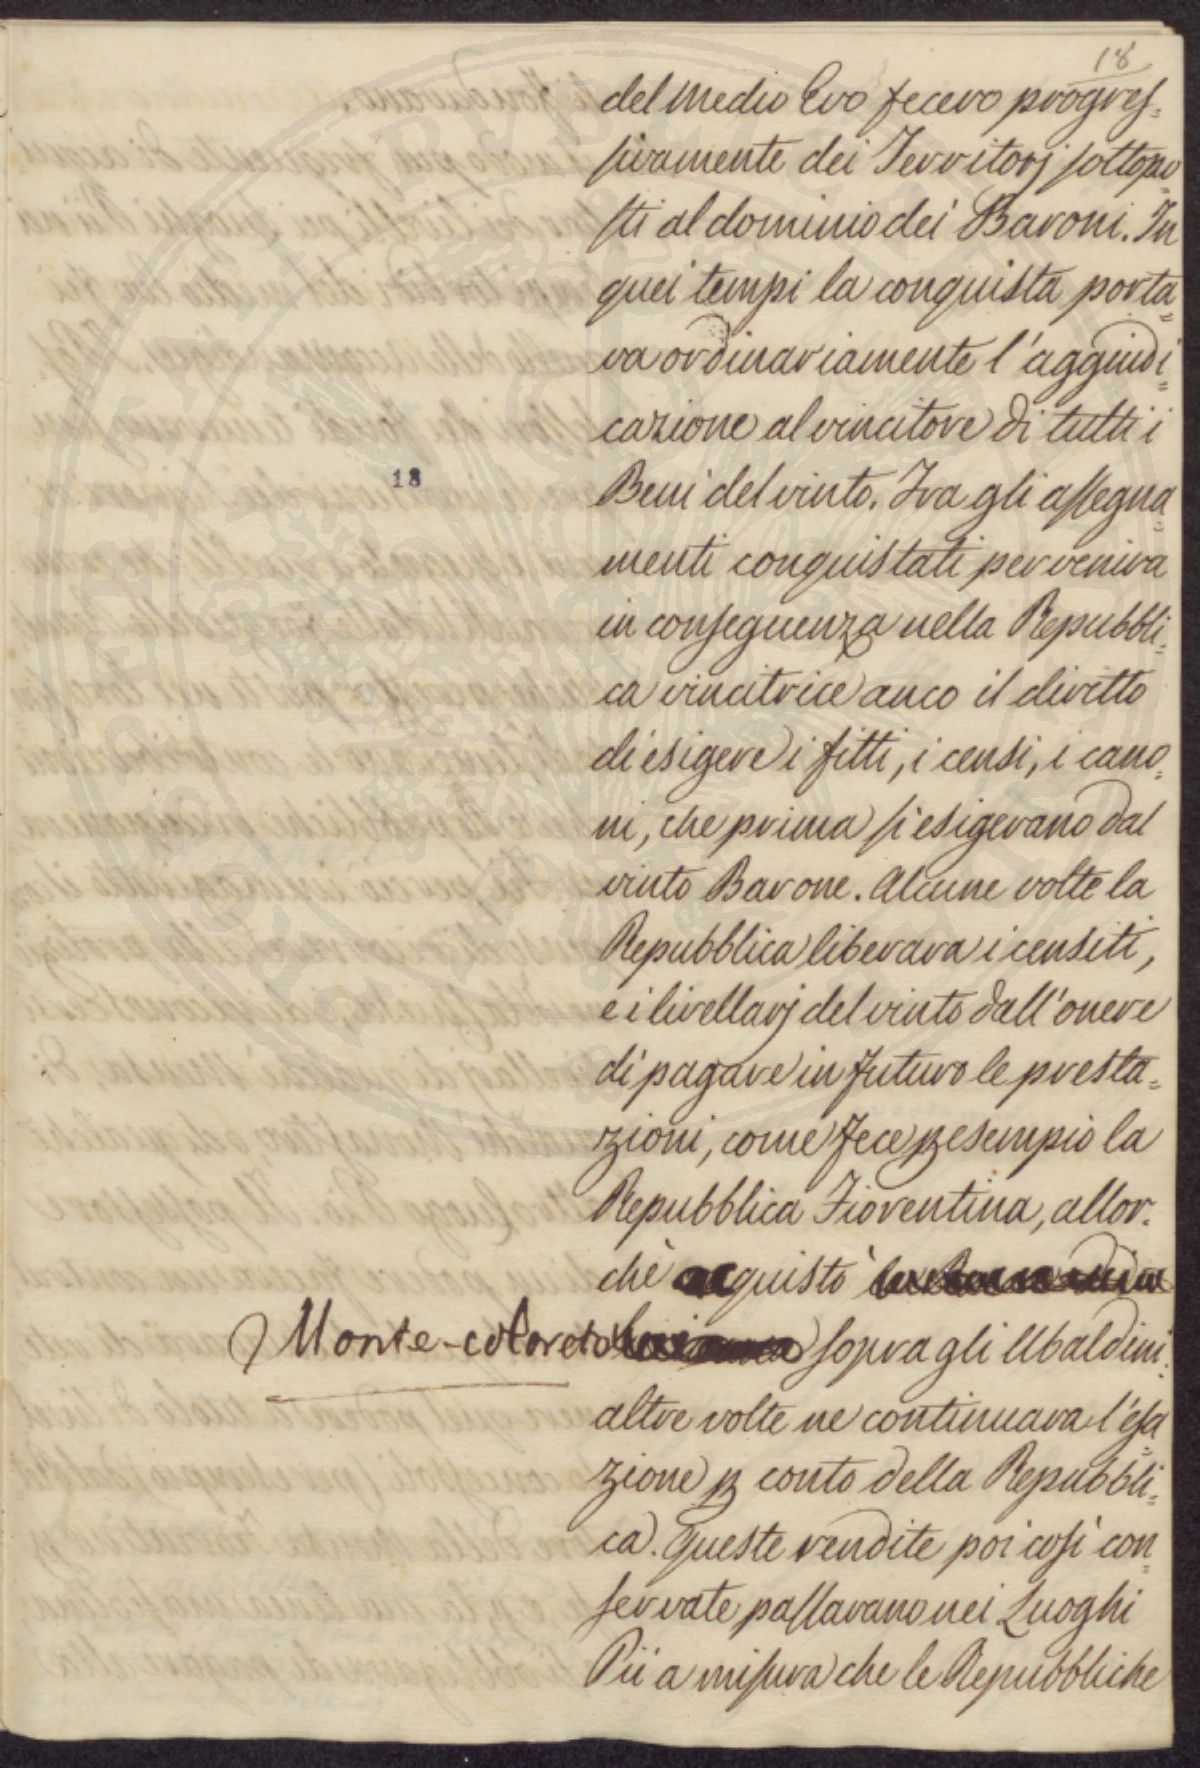 18
del medio Evo fecero progreſ=
ſivamente dei Territorj ſottopo=
ſti al dominio dei Baroni. In
quei tempi la conquista porta=
va ordinariamente l'aggiudi=
cazione al vincitore di tutti i
18
Beni del vinto. Tra gli aſsegna=
menti conquistati perveniva
in conſeguenza nella Repubbli=
ca vincitrice anco il diritto
di esigere i fitti, i censi, i cano=
ni, che prima ſi esigevano dal
vinto Barone. Alcune volte la
Repubblica liberava i censiti,
e i livellarj del vinto dall'onere
di pagare in futuro le presta=
zioni, come fece ꝑ esempio la
Repubblica Fiorentina, allor=
chè acquistò
Monte-coloreto ſopra gli Ubaldini.
altre volte ne continuava l'eſa=
zione ꝑ conto della Repubbli=
ca. Queste rendite poi coſì con=
ſervate paſsavano nei Luoghi
Pii a miſura che le Repubbliche